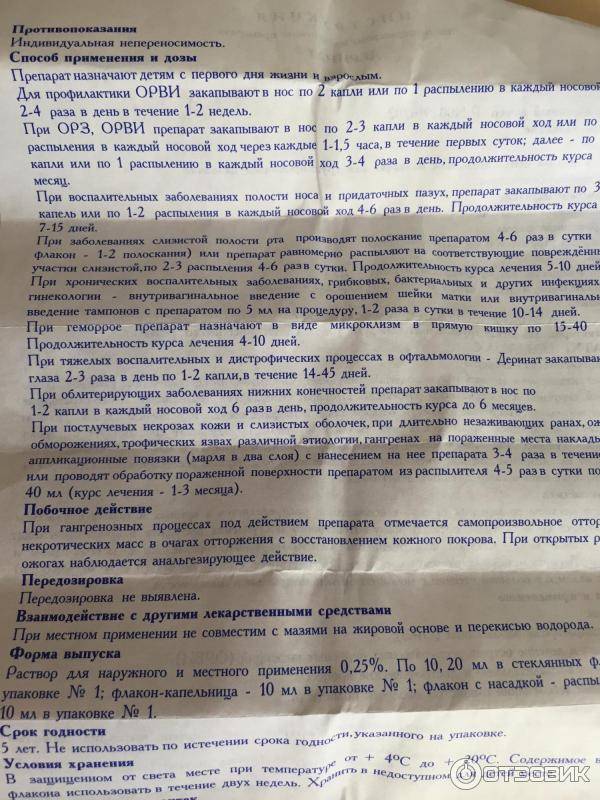 Противопоказания
Индивидуальная непереносимость.
Способ применения и дозы
Препарат назначают детям с первого дня жизни и взрослым.
Для профилактики ОРВИ закапывают в нос по 2 капли или по 1 распылению в каждый носовой
2-4 раза в день в течение 1-2 недель.
При ОРЗ, ОРВИ препарат закапывают в нос по 2-3 капли в каждый носовой ход или по
распыления в каждый носовой ход через каждые 1-1,5 часа, в течение первых суток; далее - по
капли или по 1 распылению в каждый носовой ход 3-4 раза в день, продолжительность курса
месяц.
При воспалительных заболеваниях полости носа и придаточных пазух, препарат закапывают по 3
капель или по 1-2 распыления в каждый носовой ход 4-6 раз в день. Продолжительность курса
7-15 дней.
При заболеваниях слизистой полости рта производят полоскание препаратом 4-6 раз в сутки
флакон - 1-2 полоскания) или препарат равномерно распыляют на соответствующие повреждённ
участки слизистой, по 2-3 распыления 4-6 раз в сутки. Продолжительность курса лечения 5-10 дней
При хронических воспалительных заболеваниях, грибковых, бактериальных и других инфекциях
гинекологии - внутривагинальное введение с орошением шейки матки или внутривагиналь
введение тампонов с препаратом по 5 мл на процедуру, 1-2 раза в сутки в течение 10-14 дней.
При геморрое препарат назначают в виде микроклизм в прямую кишку по 15-40
Продолжительность курса лечения 4-10 дней.
При тяжелых воспалительных и дистрофических процессах в офтальмологии - Деринат закапываю
глаза 2-3 раза в день по 1-2 капли, в течение 14-45 дней.
При облитерирующих заболеваниях нижних конечностей препарат закапывают в нос по
1-2 капли в каждый носовой ход 6 раз в день, продолжительность курса до 6 месяцев.
При постлучевых некрозах кожи и слизистых оболочек, при длительно незаживающих ранах, ож
обморожениях, трофических язвах различной этиологии, гангренах на пораженные места наклады
аппликационные повязки (марля в два слоя) с нанесением на нее препарата 3-4 раза в течение
или проводят обработку пораженной поверхности препаратом из распылителя 4-5 раз в сутки по
40 мл (курс лечения - 1-3 месяца).
Побочное действие
При гангренозных процессах под действием препарата отмечается самопроизвольное оттор
некротических масс в очагах отторжения с восстановлением кожного покрова. При открытых р
ожогах наблюдается анальгезирующее действие.
Передозировка
Передозировка не выявлена.
Взаимодействие с другими лекарственными средствами
При местном применении не совместим с мазями на жировой основе и перекисью водорода.
Форма выпуска
Раствор для наружного и местного применения 0,25%. По 10, 20 мл в стеклянных фл
упаковке № 1; флакон-капельница - 10 мл в упаковке № 1; флакон с насадкой - распы
10 мл в упаковке № 1.
Срок годности
5 лет. Не использовать по истечении срока годности, указанного на упаковке.
Условия хранения
В защищенном от света месте при температуре от + 4°С до + 20°С. Содержимое
флакона использовать в течение двух недель. Хранить в недоступном для детей
ОТЗОВИК